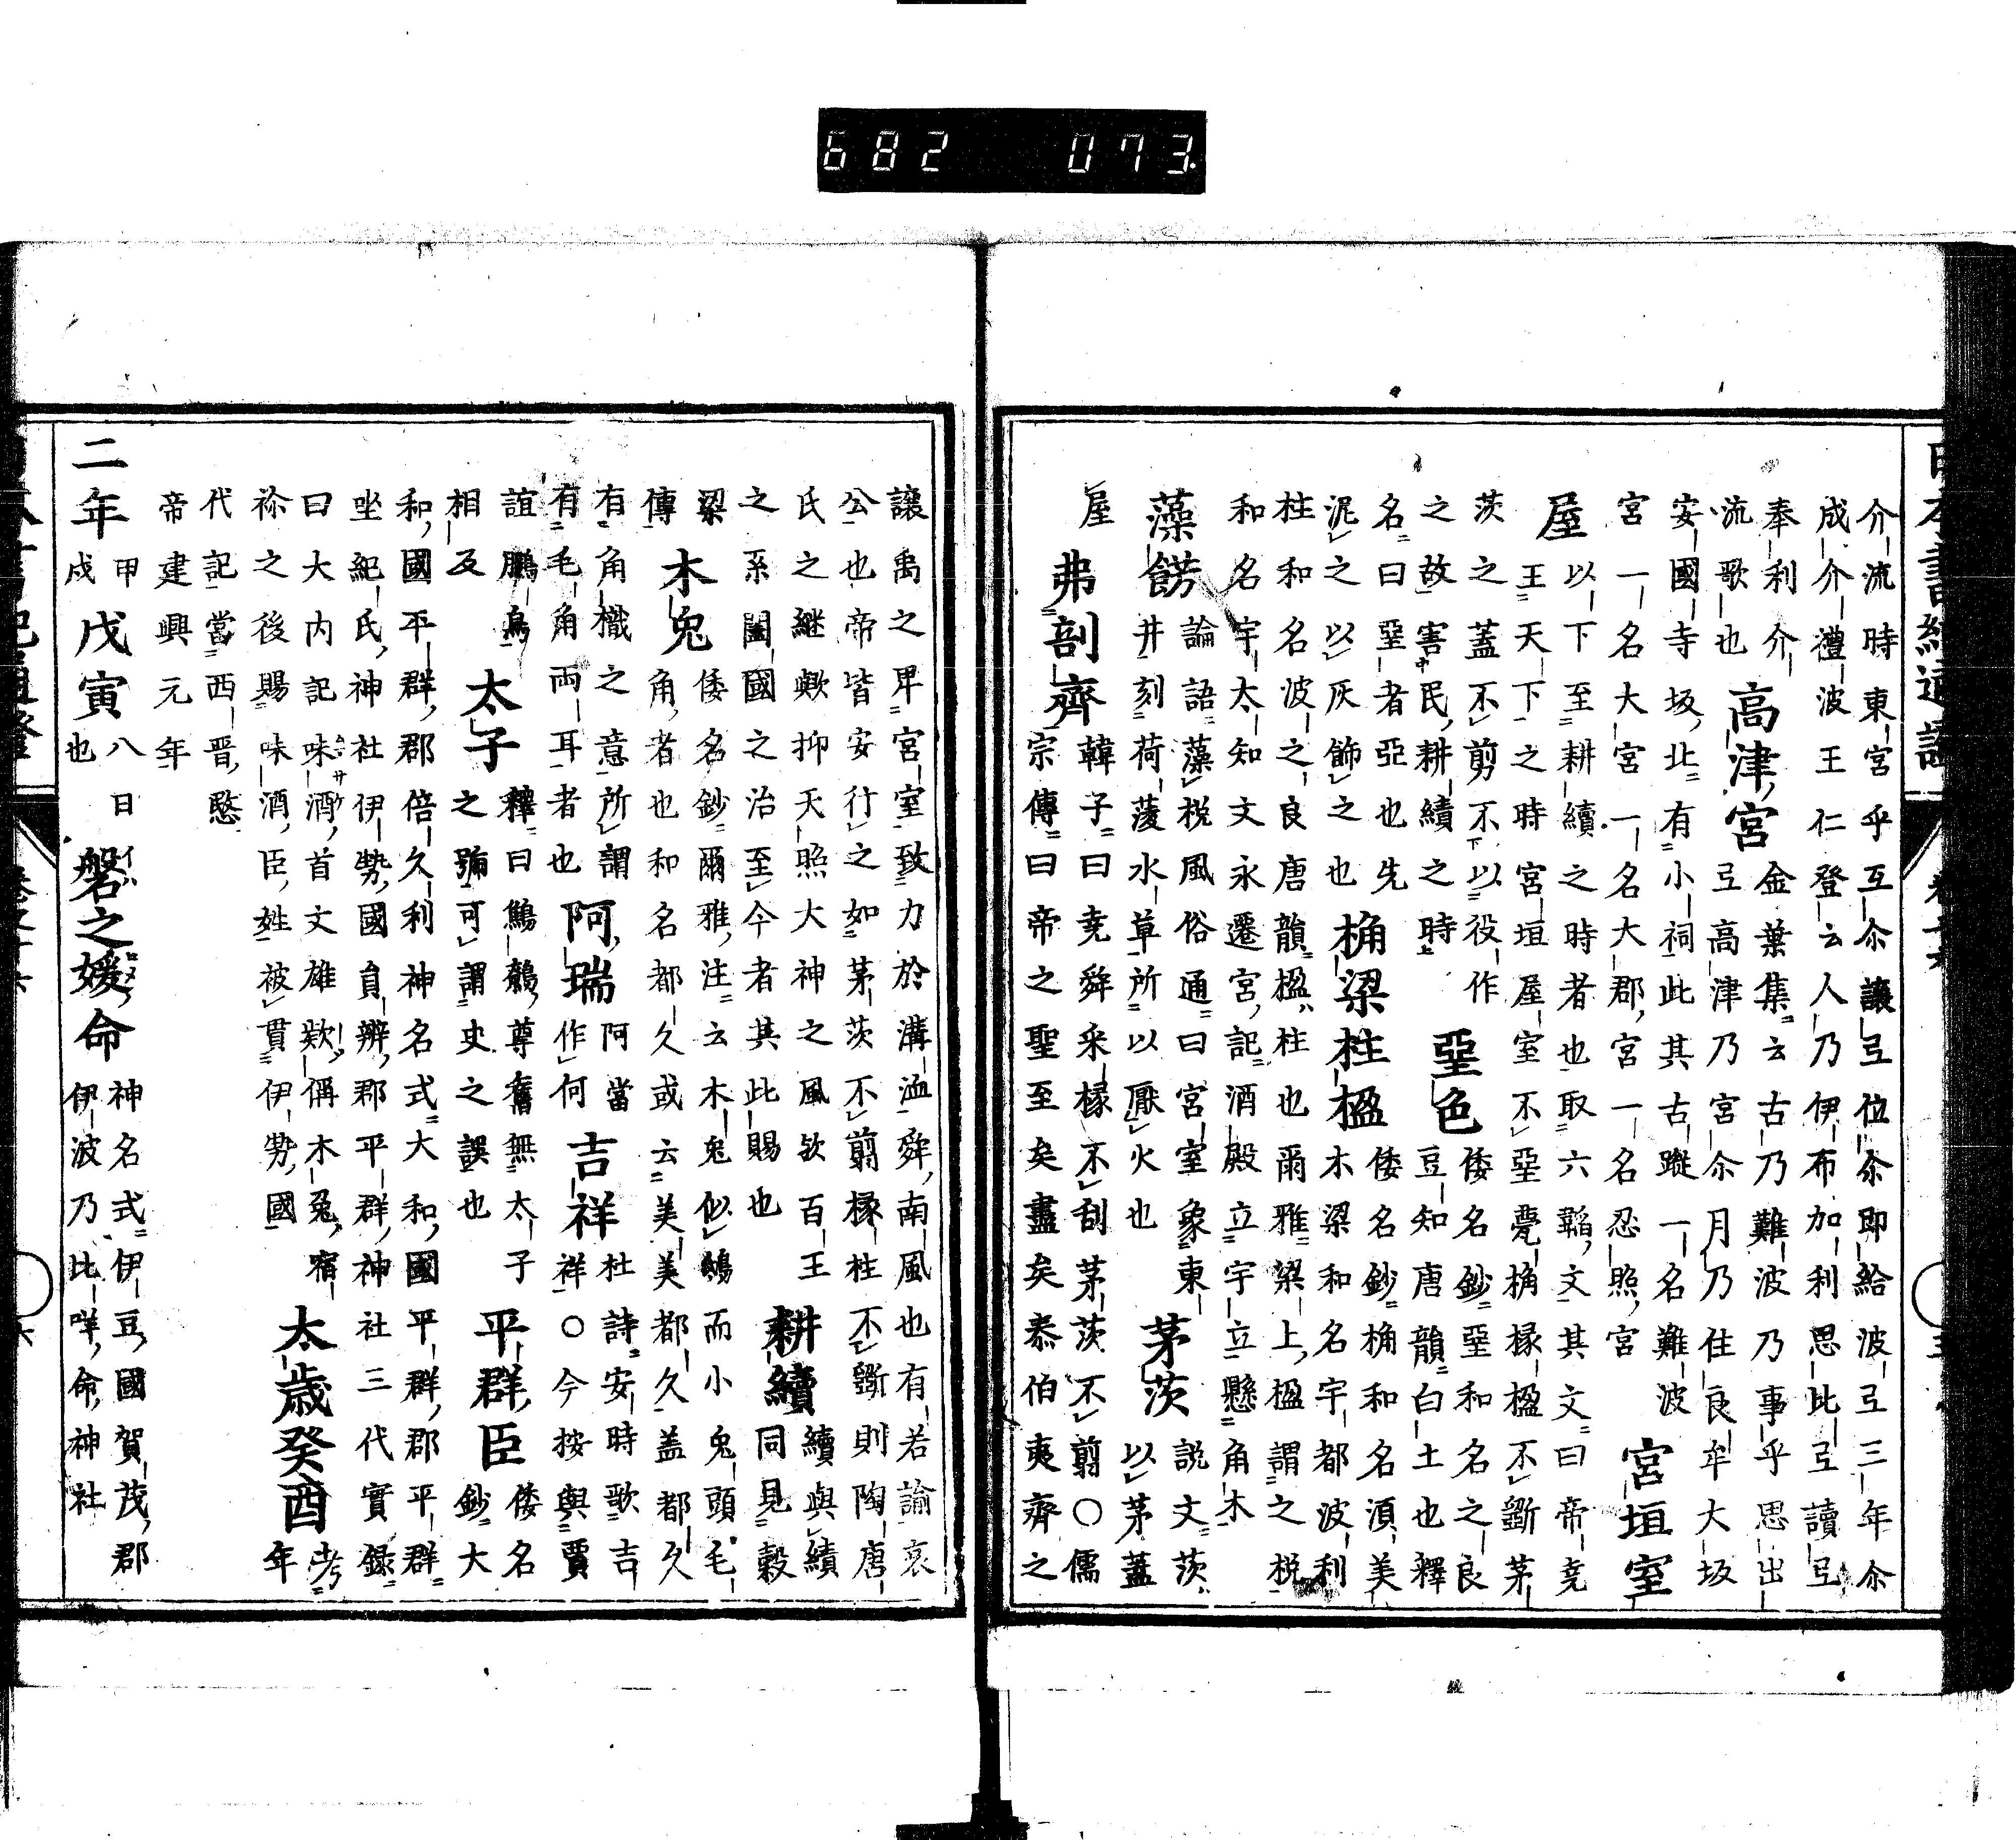 682 073
介流時東宮乎互尒讓弖位尒即給波弖三年尒
成介禮波王仁登云人乃伊布加利思比弖讀弖
奉利介高津宮金葉集云古乃難波乃事乎思出
流歌也弖高津乃宮尒月乃住良牟大坂
安國寺坂北有小祠此其古蹤一名難波
宮一名大宮一名大郡宮一名忍照宮宮垣室
屋以下至耕績之時者也取六韜文其文曰帝堯
王天下之時宮垣屋室不堊甍桷椽楹不斲茅
茨之蓋不剪不以役作堊色倭名鈔堊和名之良
之故害民耕績之時豆知唐韻白土也釋
名曰堊者亞也先桷梁柱楹倭名鈔桷和名湏美
泥之以灰飾之也木梁和名宇都波利
柱和名波之良唐韻楹柱也爾雅梁上楹謂之梲
和名宇太知文永遷宮記酒殿立宇立懸角木
藻餝論語藻梲風俗通曰宮室象東茅茨說文茨
井刻荷蔆水草所以厭火也以茅蓋
屋弗剖齊韓子曰堯舜采椽不刮茅茨不翦〇儒
宗傳曰帝之聖至矣盡矣泰伯夷齊之
讓禹之卑宮室致力於溝洫舜南風也有若諭哀
公也帝皆安行之如茅茨不翦椽柱不斲則陶唐
氏之継歟抑天照大神之風欤百王耕績績與績
之系闔國之治至今者其此賜也同見穀
梁傳木兔倭名鈔爾雅注云木兔似鴟而小兔頭毛
角者也和名都久或云美美都久盖都久
有角樴之意所謂阿瑞阿當吉祥杜詩安時歌吉
有毛角兩耳者也作何祥〇今按與賈
誼鵬鳥太子釋曰鷦鷯尊奮無太子平群臣倭名
相反之號可謂史之誤也鈔大
和國平群郡倍久利神名式大和國平群郡平群
坐紀氏神社伊勢國員辨郡平群神社三代實録
曰大内記味酒首文雄欵偁木兎宿太歳癸酉考
祢之後賜味酒臣姓被貫伊勢國年
代記當西晋愍
帝建興元年
二年甲戍戊寅八日也磐之媛命神名式伊豆國賀茂郡
伊波乃比咩命神社